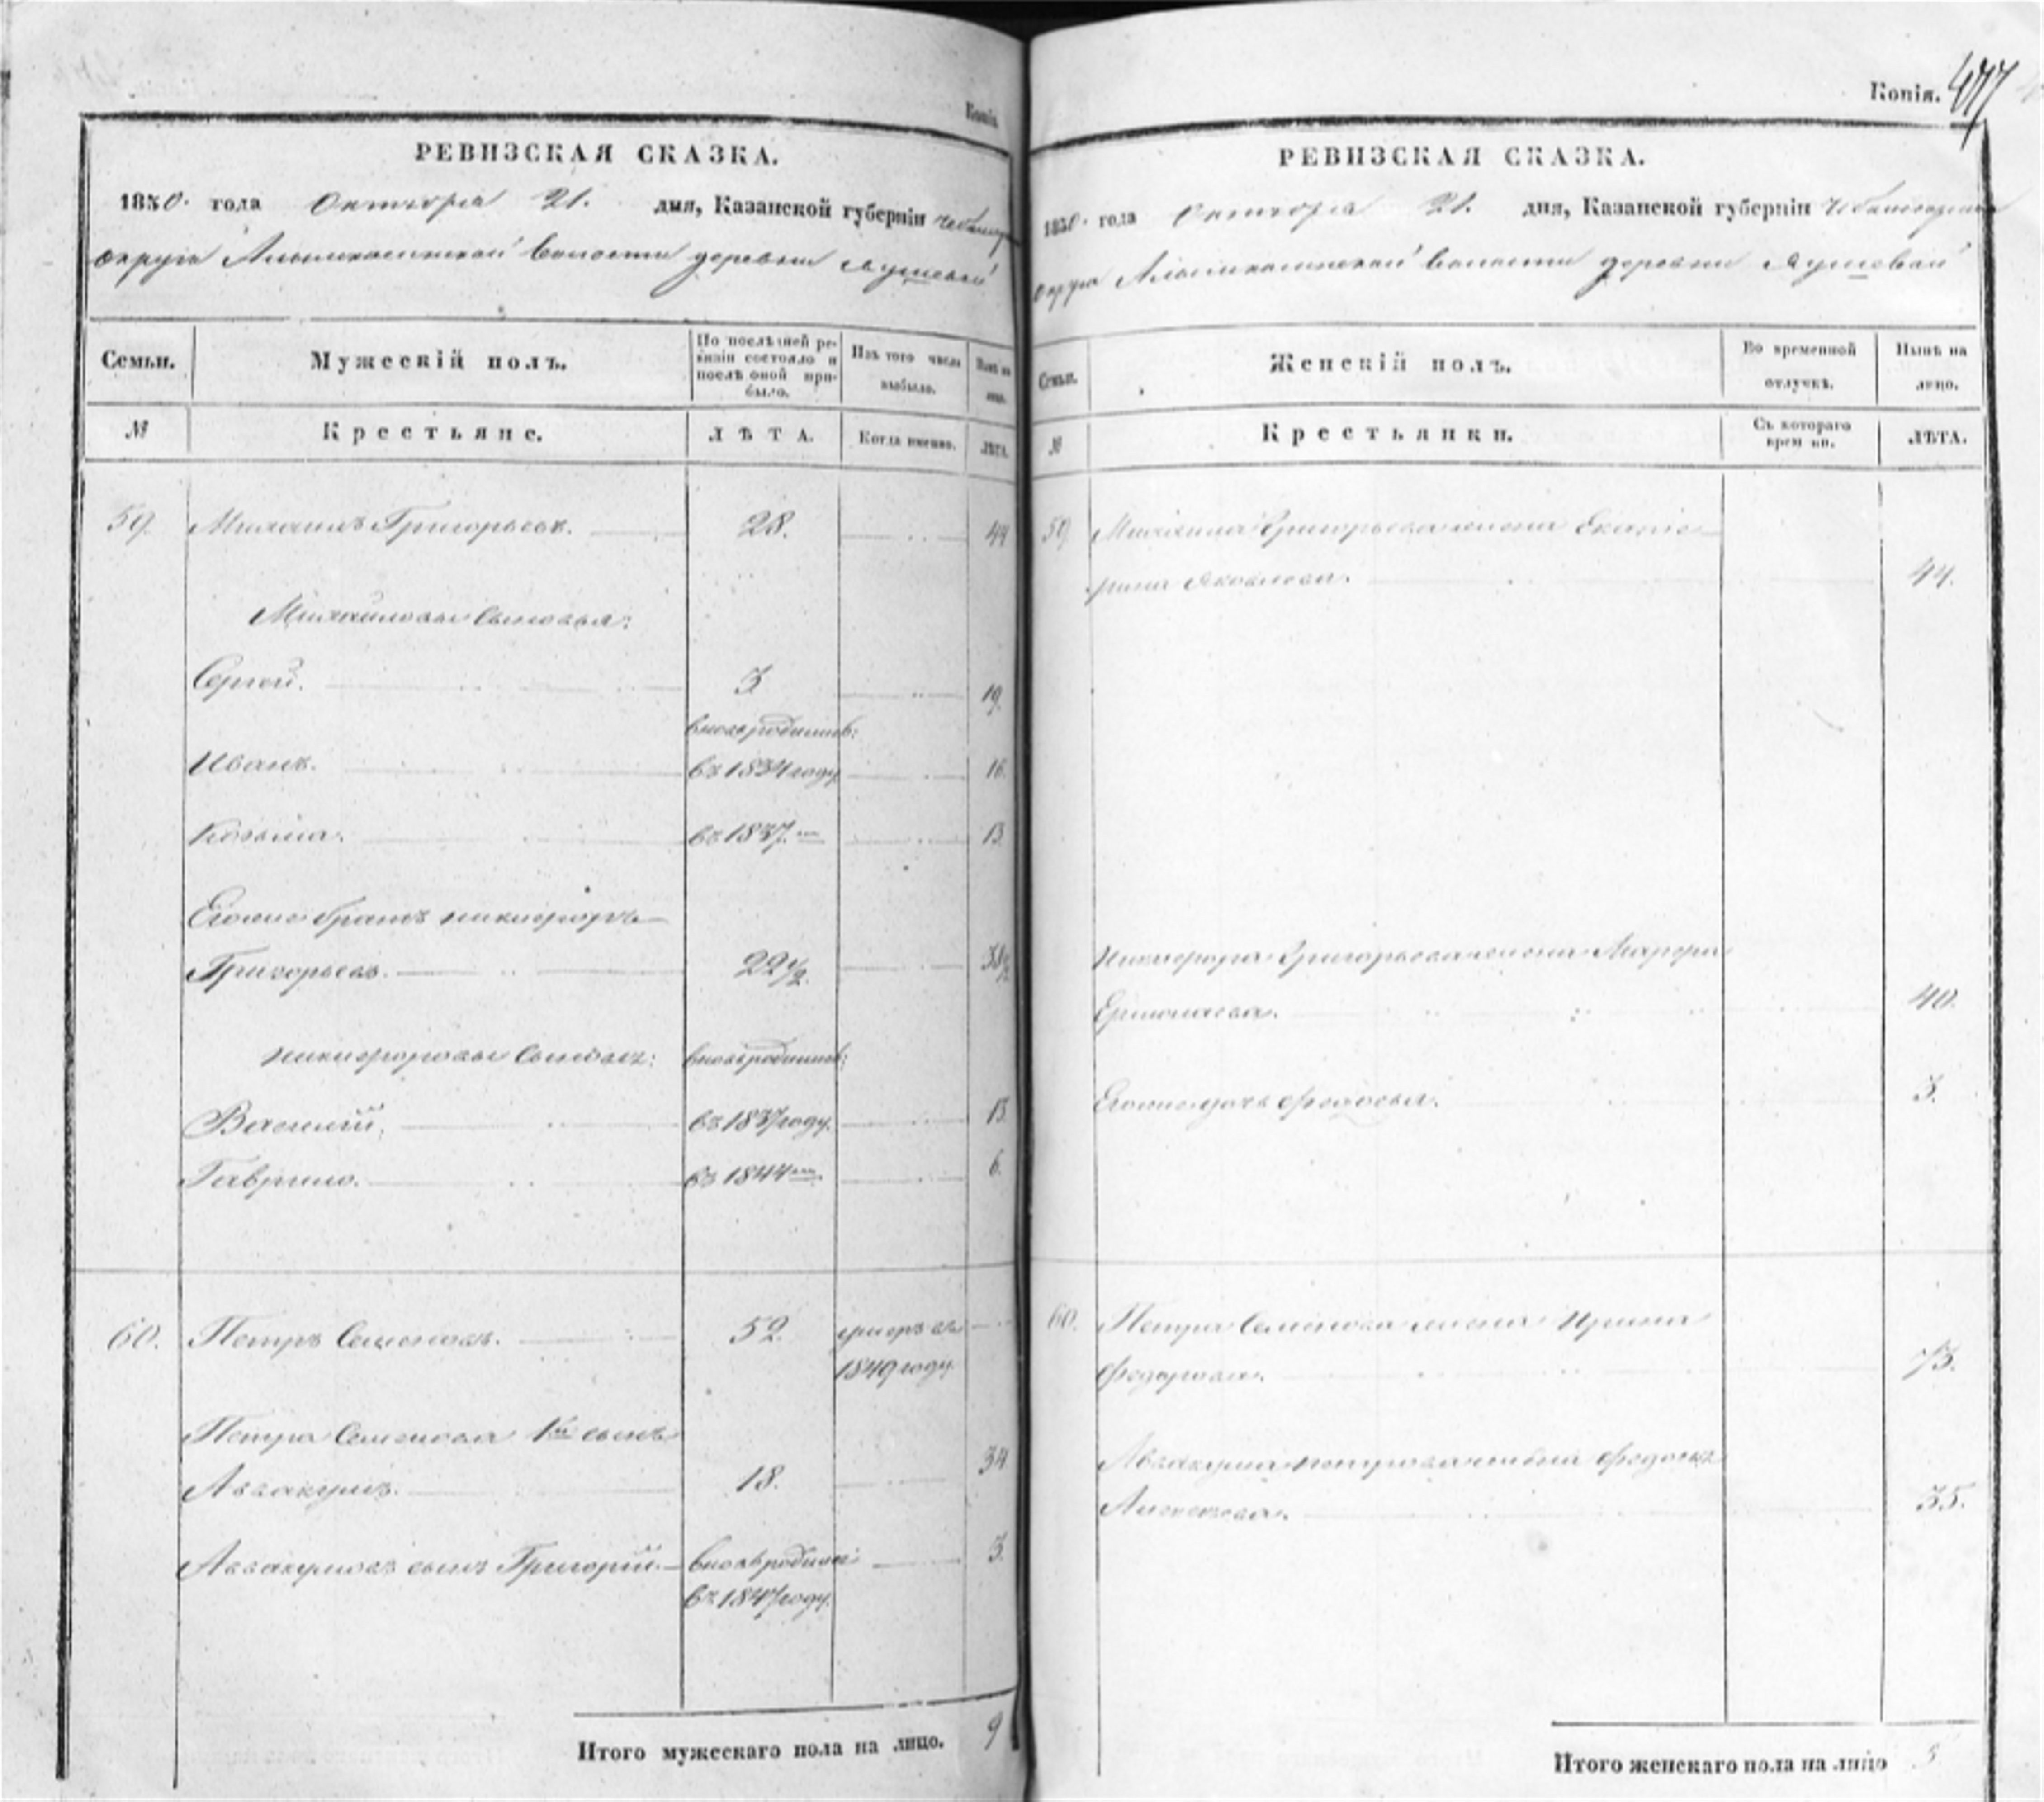 Копія.
РЕВИЗСКАЯ СКАЗКА.
1850. года Октября 21. дня, Казанской губерніи Чебоксар
округа Алымкасинской волости деревни
Семьи. Мужескій полъ. По послѣдней ре-
визіи состояло и
послѣ оной при-
было. Изъ того числа
выбыло. Нынѣ на
лицо.
№ Крестьяне. ЛѢТА. Когда именно. ЛѢТА.
59. Михаилъ Григорьевъ. 28. 44
Михайловы сыновья:
Сергей. 3 19.
вновьрожденные:
Иванъ. въ 1834 году 16.
Козьма. въ 1837. — 13.
Его же братъ Никифоръ
Григорьевъ. 22 1/2. 38 1/2
Никифоровы сыновья: вновьрожденные:
Василій. въ 1837 году. 13.
Гаврило. въ 1844 — 6.
60. Петръ Семеновъ. 52. умеръ въ
1849 году.
Петра Семенова 1й сынъ
Аввакумъ. 18. 34
Аввакумовъ сынъ Григорій.
въ 1847 году. 3.
Итого мужескаго пола на лицо. 9
Копія. 477
РЕВИЗСКАЯ СКАЗКА.
1850. года Октября 21. дня, Казанской губерніи Чебоксарскаго
округа Алымкасинской волости деревни
Семьи. Женскій полъ. Во временной
отлучкѣ. Нынѣ на
лицо.
№ Крестьянки. Съ котораго
времени. ЛѢТА.
59 Михаила Григорьева жена Екате-
рина Яковлева. 44.
Никифора Григорьева жена Марфа
Ермолаева. 40.
Его же дочь Федосья. 3.
60. Петра Семенова жена Ирина
Федорова. 73.
Аввакума Петрова жена Федосья
35.
Итого женскаго пола на лицо 5